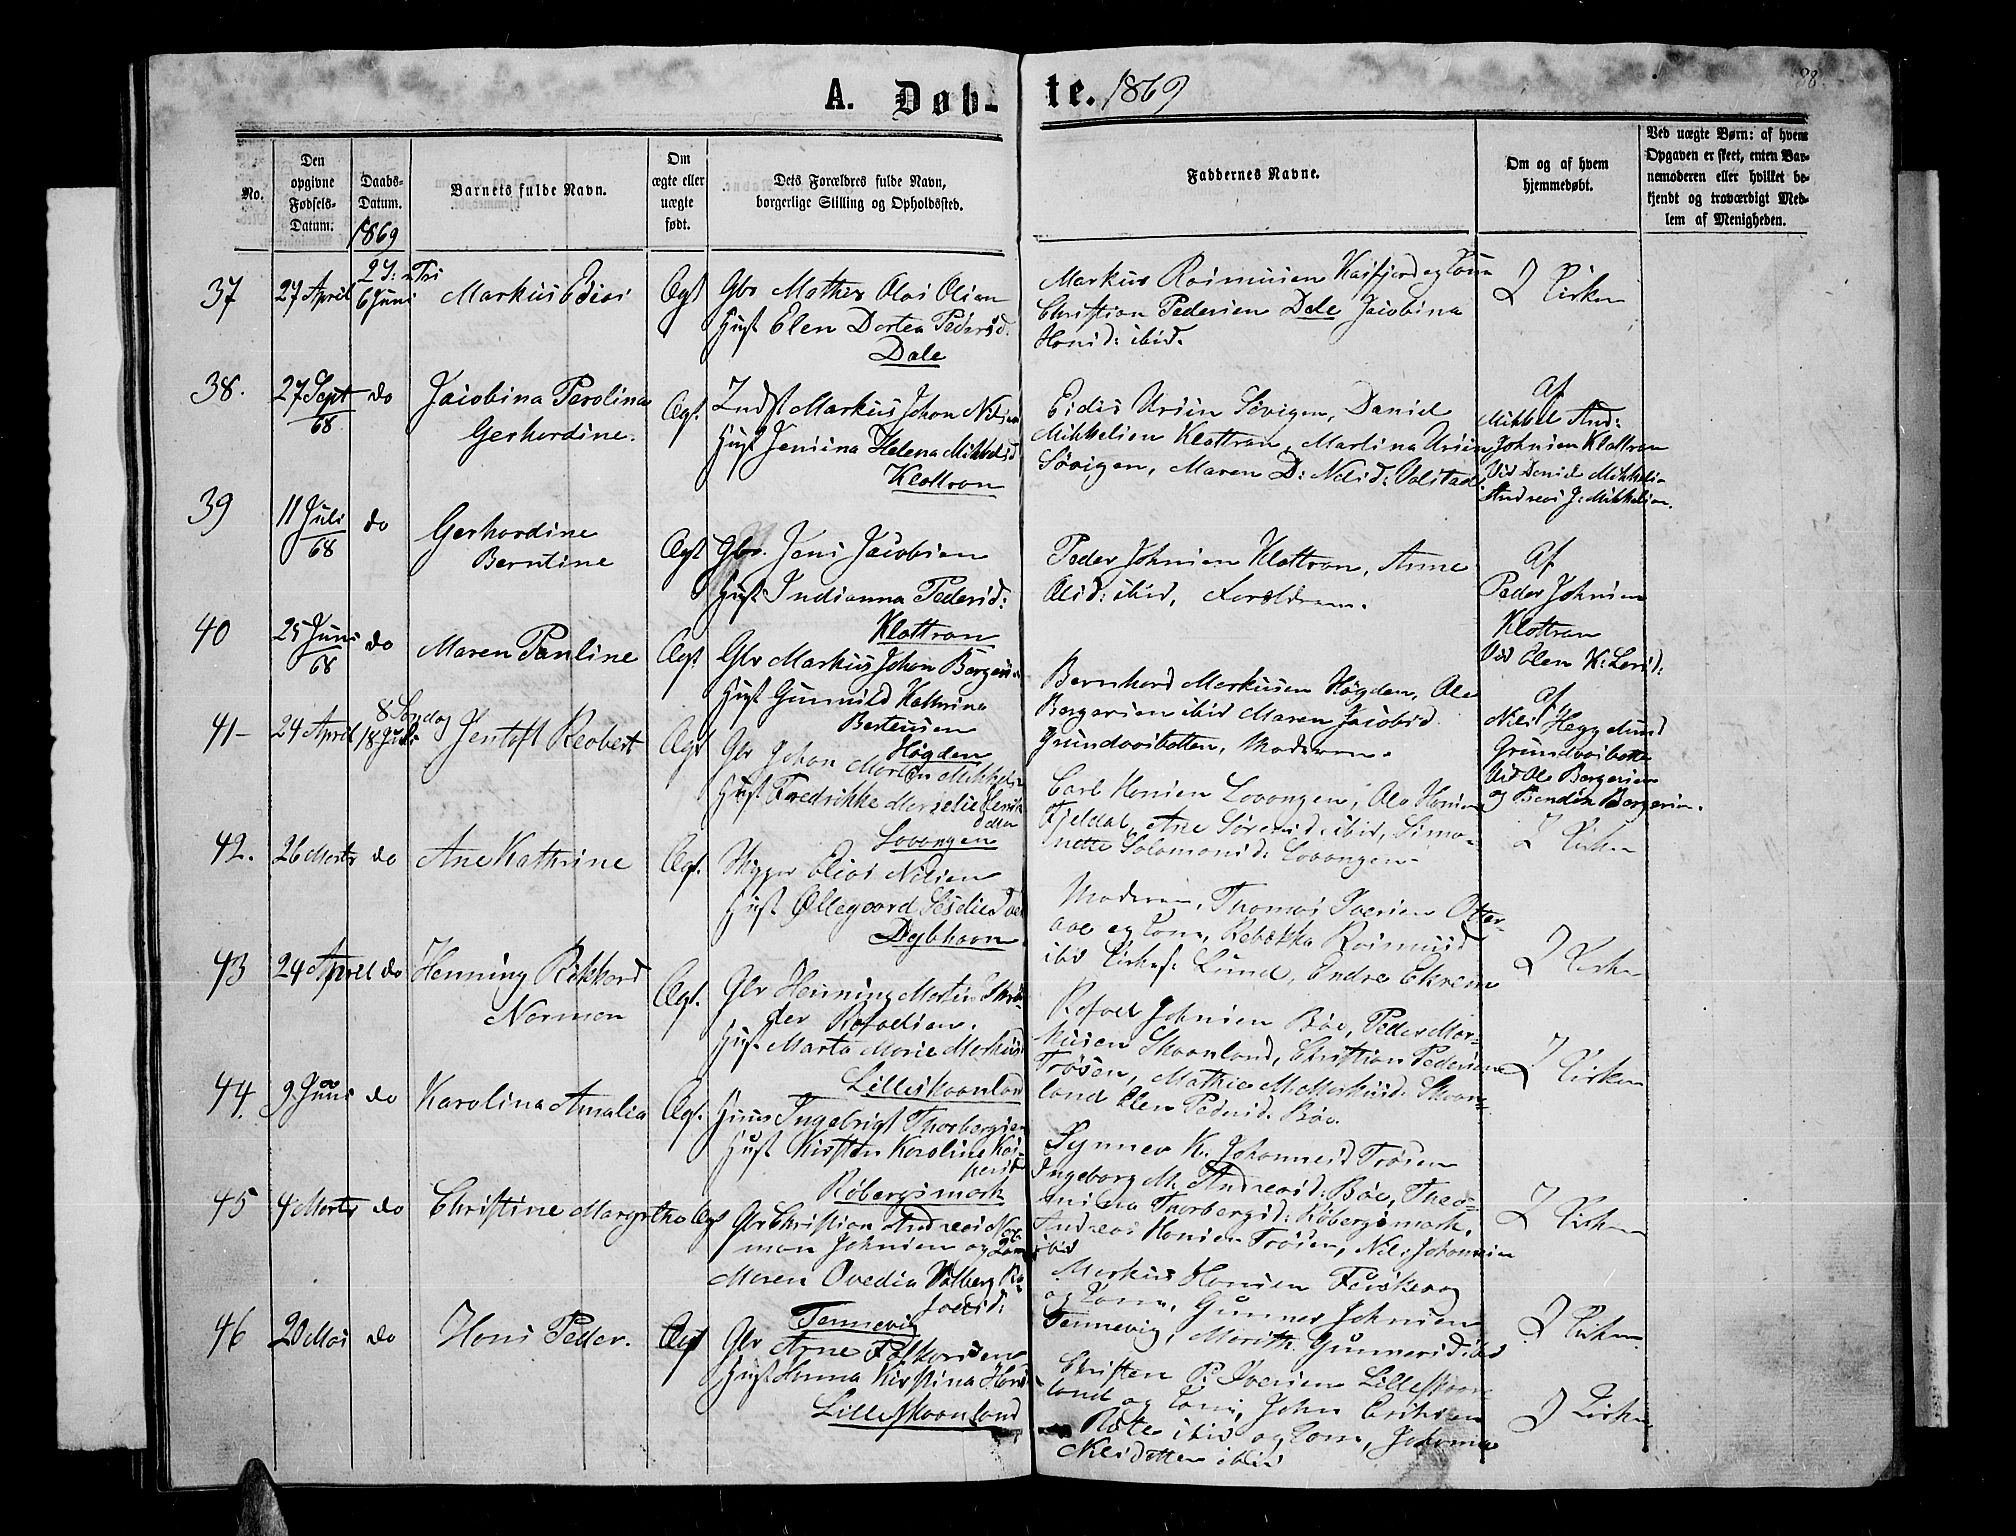 38.
A. Døb-
te. 1869
No.
Den opgivne Fødsels-Datum.
Daabs-Datum.
1869
Barnets fulde Navn.
Om ægte eller uægte født.
Dets Forældres fulde Navn, borgerlige Stilling og Opholdssted.
Faddernes Navne.
Om og af hvem hjemmedøbt.
Ved uægte Børn: af hvem Opgaven er skeet, enten Barnemoderen eller hvilket bekjendt og troværdigt Medlem af Menigheden.
37
27 April
6 Juni
Markus Edias
Ægt
Gbr Mathis Olai Olsen
Hust Elen Dortea Pedersd.
Dale
Markus Rasmussen Kasfjord og Kone
Christian Pedersen Dale Jacobina
Hansd: ibid.
I Kirken
38.
27 Sept
68
do
Jacobina Perolina
Gerhardine.
Ægt.
Indst Markus Johan Nilsen
Hust Jensina Helena Mikkelsd
Klattran
Eidis Ursin Sörvigen, Daniel
Mikkelsen Klattran, Martina Ursin
Sörvigen, Maren D: Nilsd: Volstad
af
Mikkel And:
Johnsen Klattran
Vid Daniel Mikkels-
Andreas J: Mikkelsen.
39
11 Juli
68
do
Gerhardine
Berntine
Ægt
Gbr. Jens Jacobsen
Hust Indianna Pedersd:
Klattran
Peder Johnsen Klattran, Anne
Olsd: ibid, Forældrene.
af
Peder Johnsen
Klattran
Vid Elen K: Larsd:
40
25 Juni
68
do
Maren Pauline
Ægt
Gbr Markus Johan Borgers-
Hust Gunnild Kathrina
Berteusen
Högden
Bernhard Markussen Högden, Ole
Borgersen ibid Maren Jacobsd
Grundvasbotten, Moderen.
af
Nils Heggelund
Grundvasbotten
Vid Ole Borgersen
og Bendik Borgersen.
41-
24 April
8 Söndag
18 Juli
Jentoft Reobert
Ægt
Gbr Johan Martin Mikkelsen
Hust Fredrikke Marselie Henrik
datter
Lavangen
Carl Hansen Lavangen, Ole Hansen
Fjeldal, Ane Sörensd: ibid, Simo-
nette Salamonsd: Lavangen-
I Kirken
42.
26 Marts
do
Ane Kathrine
Ægt.
Skipper Elias Nilsen
Hust Ollegaard Seselie
Dybhavn
Moderen, Thomas Iversen Otter-
aae og Kone, Rebekka Rasmusd
ibid Kirkes: Lund, Endre Ekrem
I Kirken
43
24 April
do
Henning Rikkard
Norman
Ægt.
Gbr Henning Martin Skrö-
der Rafaelsen.
Hust Marta Marie Markusd
Lilleskaanland
Rafael Johnsen Böe, Peder Mar-
kusen Skaanland, Christian Pedersen
Tråsen, Mathie M. Markusd: Skaan-
land Elen Pedersd. Böe.
I Kirken
44.
9 Juni
do
Karolina Amalia
Ægt.
Huusm Ingebrigt Thorbergsen
Hust Kirsten Karoline Kas-
persd
Röbergsmark
Synnev K. Johannesd Tråsen
Ingeborg M. Andreasd: Böe, Thed-
Thorbergsd: Röbergsmark,
Andreas Hansen Tråsen, Nils Johansen
ibid
I Kirken
45
4 Marts
do
Christine Margrethe
Ægt
Gbr Christian Andreas Nor-
man Johnsen og Kone
Maren Ovedia Valberg Ra-
faelsd:
Tennevig
Markus Hansen Fuskevåg
og Kone, Gunner Johnsen
Tennevig, Marith Gunnersd ibid
I Kirken
46
20 Mai
do
Hans Peder.
Ægt
Gbr Arne Falkorsen
Hust Anna Kirstina Hans
Lilleskaanland
Christen P. Iversen Lilleskaan-
land og Kone, John Eriksen
Rate ibid og Kone, Johanna
Nilsdatter ibid
I Kirken